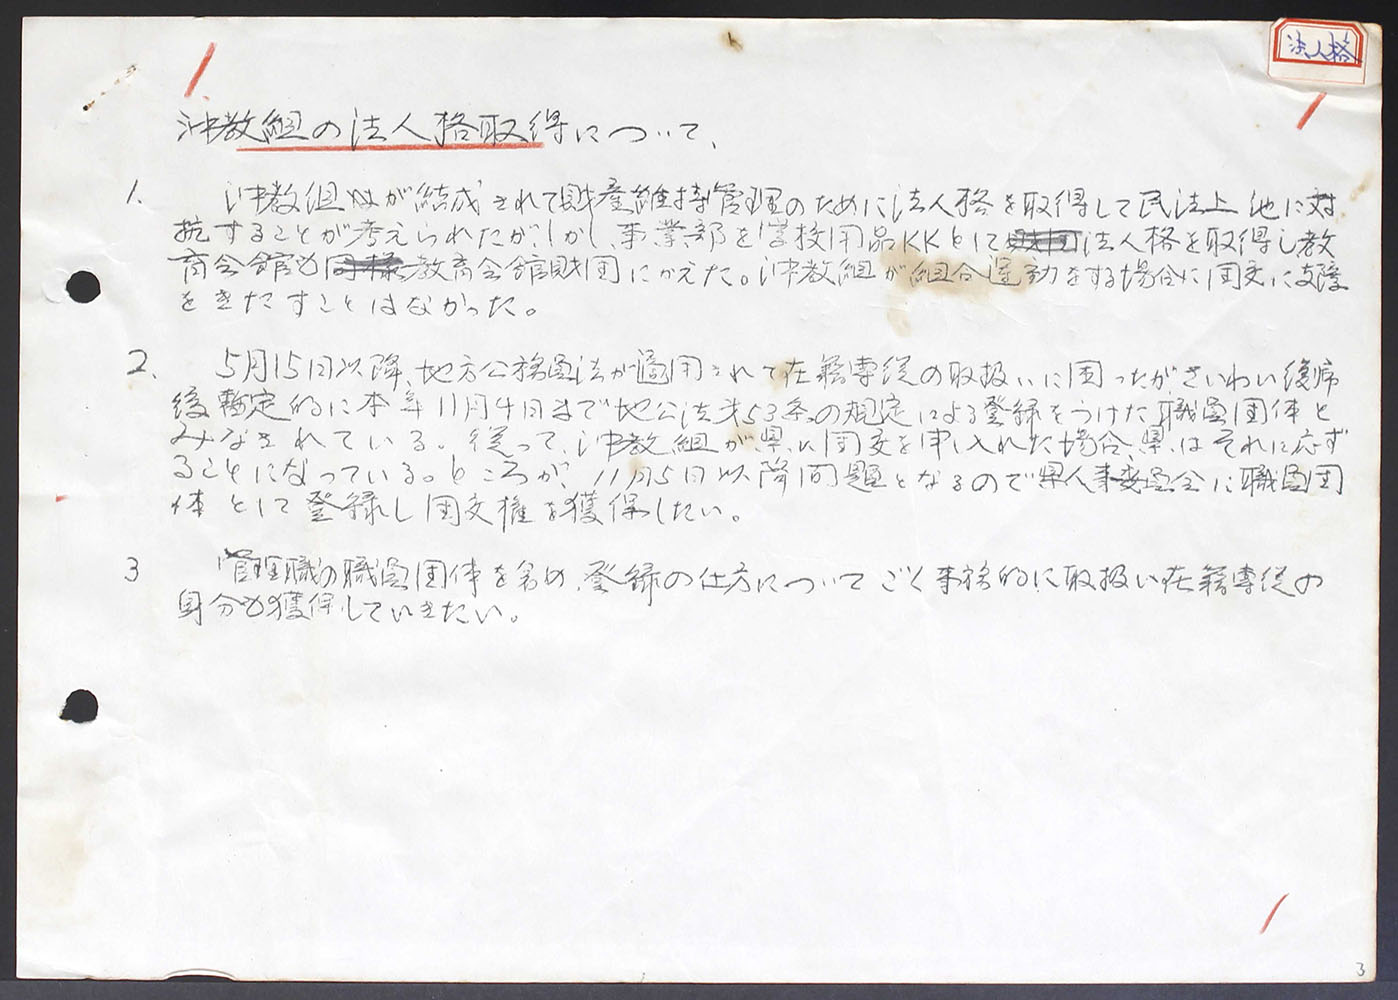 法人格
沖教組の法人格取得について、
1. 沖教組が結成されて財産維持管理のために法人格を取得して民法上他に対
抗することが考えられたが、しかし、事業部を学校用品KKとして法人格を取得し教
育会館も教育会館財団にかえた。沖教組が組合運動をする場合に団交に支障
をきたすことはなかった。
2. 5月15日以降、地方公務員法が適用されて在籍専従の取扱いに困ったがさいわい復帰
後暫定的に本年11月4日まで地公法第53条の規定による登録をうけた職員団体と
みなされている。従って、沖教組が県に団交を申し入れた場合、県はそれに応ず
ることになっている。ところが、11月5日以降問題となるので県人事委員会に職員団
体として登録し団交権を獲得したい。
3 管理職の職員団体を含め、登録の仕方についてごく事務的に取扱い在籍専従の
身分も獲得していきたい。
3